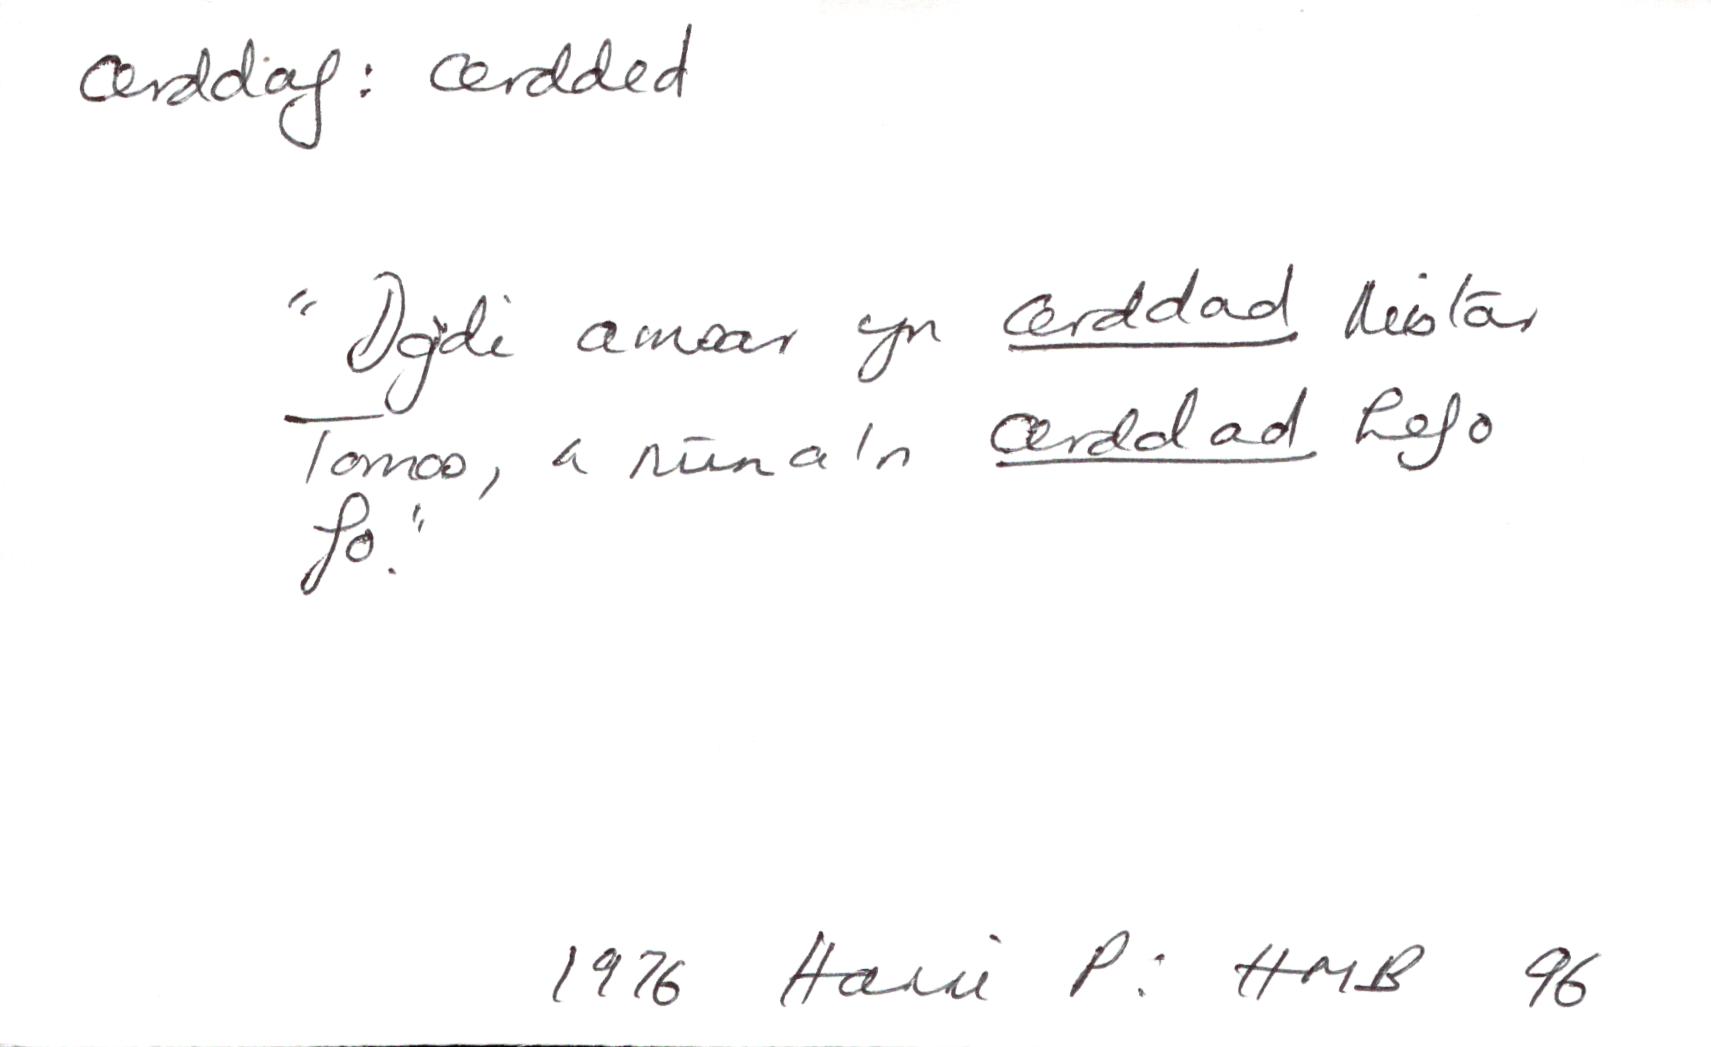 cerddaf: cerdded
"Dydi amsar yn cerddad Mistar
Tomos, a ninna'n cerddad hefo
fo."
1976 Harri P: HMB 96